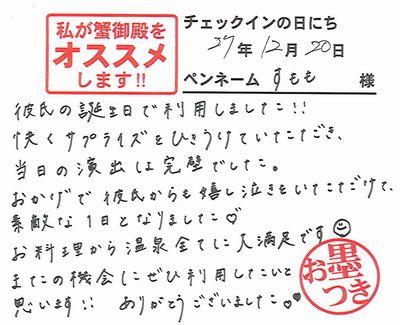 私が蟹御殿を
オススメ
します!!
チェックインの日にち
27年12月20日
ペンネーム すもも 様
彼氏の誕生日で利用しました!!
快くサプライズをひきうけていただき、
当日の演出は完璧でした。
おかげで彼氏からも嬉し泣きをいただけて、
素敵な1日となりました♡
お料理から温泉全てに大満足です☺
またの機会にぜひ利用したいと
思います!! ありがとうございました。♥
お墨つき